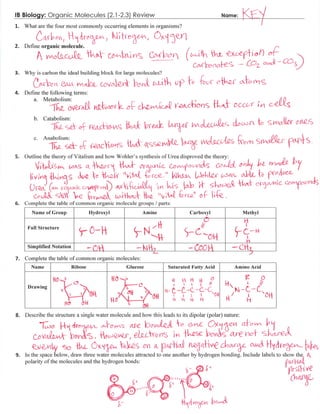 IB Biology: Organic Molecules (2.1-2.3) Review Name: KEY
1. What are the four most commonly occurring elements in organisms?
Carbon, Hydrogen, Nitrogen, Oxygen
2. Define organic molecule.
A molecule that contains Carbon (with the exception of
carbonates - CO2 and -CO3)
3. Why is carbon the ideal building block for large molecules?
Carbon can make covalent bond with up to four other atoms
4. Define the following terms:
a. Metabolism:
The overall network of chemical reactions that occur in cells
b. Catabolism:
The set of reactions that break larger molecules down to smaller ones
c. Anabolism:
The set of reactions that assemble large molecules from smaller parts.
5. Outline the theory of Vitalism and how Wohler's synthesis of Urea disproved the theory:
Vitalism was a theory that organic compounds could only be made by
living things due to their "vital force." When Wohler was able to produce
Urea (an organic compound) artificially in his lab it showed that organic compounds
could still be formed without the "vital force" of life.
6. Complete the table of common organic molecule groups / parts:
Name of Group Hydroxyl Amine Carboxyl Methyl
Full Structure
O-H N H H C O OH H C-H H
Simplified Notation -OH -NH2 -COOH -CH3
7. Complete the table of common organic molecules:
Name Ribose Glucose Saturated Fatty Acid Amino Acid
Drawing
8. Describe the structure a single water molecule and how this leads to its dipolar (polar) nature:
Two Hydrogen atoms are bonded to one Oxygen atom by
Covalent bonds. However, electrons in these bonds are not shared
evenly so the Oxygen takes on a partial negative charge and Hydrogen takes
a partial
positive
charge
9. In the space below, draw three water molecules attracted to one another by hydrogen bonding. Include labels to show the
polarity of the molecules and the hydrogen bonds:
Hydrogen bond